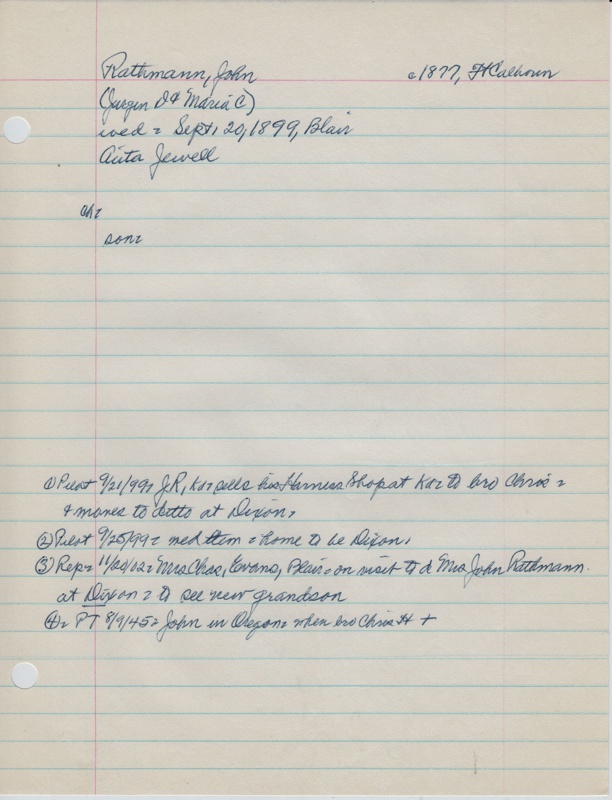 Rathmann, John c1877, Ft Calhoun
(Jurgen D & Maria C)
wed = Sept. 20, 1899, Blair
Anta Jewell
ch:
son:
① Pilot 9/21/99: J.R, Kz sells his Harness Shop at Kz to bro Chris =
& moves to ditto at Dixon.
② Pilot 9/25/99 = wed Item = home to be Dixon.
③ Rep = 11/20/02 = Mrs Chas, Evans, Blair = on visit to d Mrs John Rathmann
at Dixon = to see new grandson
④ = PT 8/9/45 = John in Oregon = when bro Chris H +